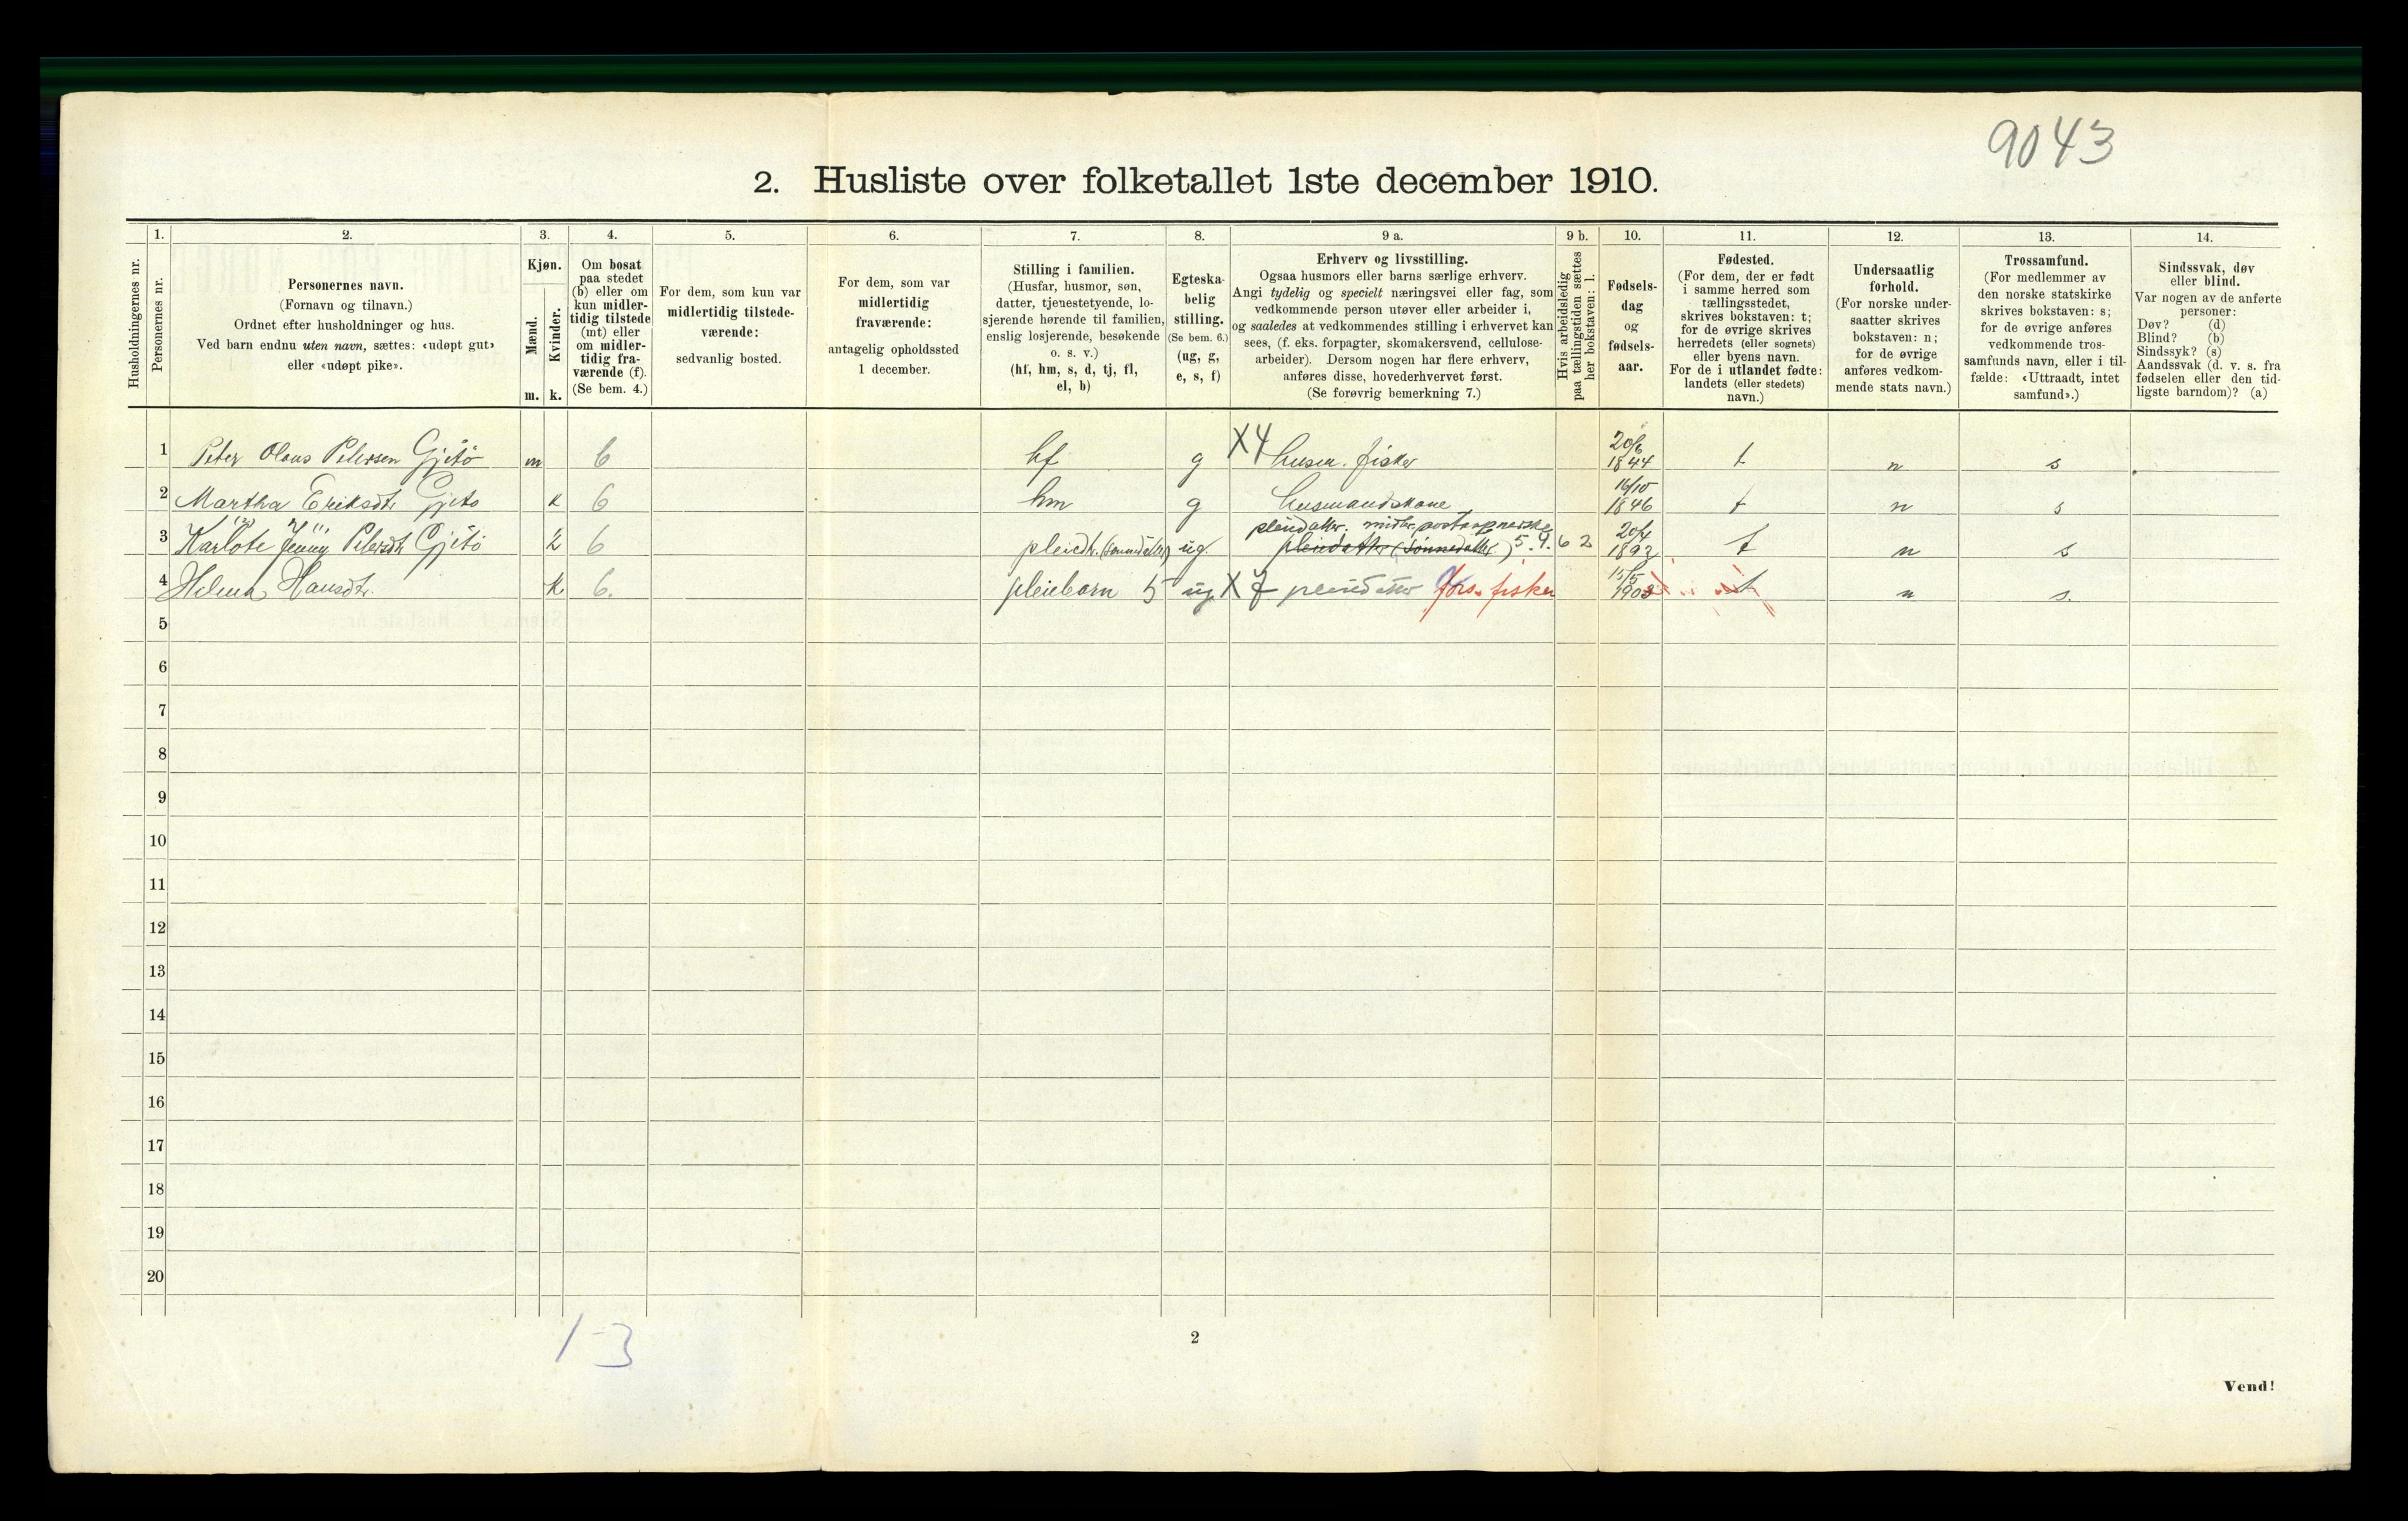 9043
2. Husliste over folketallet 1ste december 1910.
1. 2. 3. 4. 5. 6. 7. 8. 9 a. 9 b. 10. 11. 12. 13. 14.
Husholdningernes nr.
Personernes nr.
Personernes navn.
(Fornavn og tilnavn.)
Ordnet efter husholdninger og hus.
Ved barn endnu uten navn, sættes: «udøpt gut»
eller «udøpt pike».
Kjøn.
Mænd.
Kvinder.
m. k.
Om bosat
paa stedet
(b) eller om
kun midler-
tidig tilstede
(mt) eller
om midler-
tidig fra-
værende (f).
(Se bem. 4.)
For dem, som kun var
midlertidig tilstede-
værende:
sedvanlig bosted.
For dem, som var
midlertidig
fraværende:
antagelig opholdssted
1 december.
Stilling i familien.
(Husfar, husmor, søn,
datter, tjenestetyende, lo-
sjerende hørende til familien,
enslig losjerende, besøkende
o. s. v.)
(hf, hm, s, d, tj, fl,
el, b)
Egteska-
belig
stilling.
(Se bem. 6.)
(ug, g,
e, s, f)
Erhverv og livsstilling.
Ogsaa husmors eller barns særlige erhverv.
Angi tydelig og specielt næringsvei eller fag, som
vedkommende person utøver eller arbeider i,
og saaledes at vedkommendes stilling i erhvervet kan
sees, (f. eks. forpagter, skomakersvend, cellulose-
arbeider). Dersom nogen har flere erhverv,
anføres disse, hovederhvervet først.
(Se forøvrig bemerkning 7.)
Hvis arbeidsledig
paa tællingstiden sættes
her bokstaven: l.
Fødsels-
dag
og
fødsels-
aar.
Fødested.
(For dem, der er født
i samme herred som
tællingsstedet,
skrives bokstaven: t;
for de øvrige skrives
herredets (eller sognets)
eller byens navn.
For de i utlandet fødte:
landets (eller stedets)
navn.)
Undersaatlig
forhold.
(For norske under-
saatter skrives
bokstaven: n;
for de øvrige
anføres vedkom-
mende stats navn.)
Trossamfund.
(For medlemmer av
den norske statskirke
skrives bokstaven: s;
for de øvrige anføres
vedkommende tros-
samfunds navn, eller i til-
fælde: «Uttraadt, intet
samfund».)
Sindssvak, døv
eller blind.
Var nogen av de anførte
personer:
Døv? (d)
Blind? (b)
Sindssyk? (s)
Aandssvak (d. v. s. fra
fødselen eller den tid-
ligste barndom)? (a)
1 Peter Olaus Petersen Gjetö m b hf g X4 husm. fisker 20/6 1844 t n s
2 Martha Eriksdtr Gjetö k b hm g husmandskone 16/10 1846 t n s
pleiedatter. midler. postaapnerske
3 Karlote Jenny Petersdtr Gjetö k b pleiedtr. (sønnedatter) ug. pleiedatter (sønnedatter) 5.9.62 20/4 1892 t n s
4 Helena Hansdtr. k b. pleiebarn 5 ug X 7 pleiedatter fors. fisker 15/5 1903 t n s.
5
6
7
8
9
10
11
12
13
14
15
16
17
18
19
20
1-3
2
Vend!